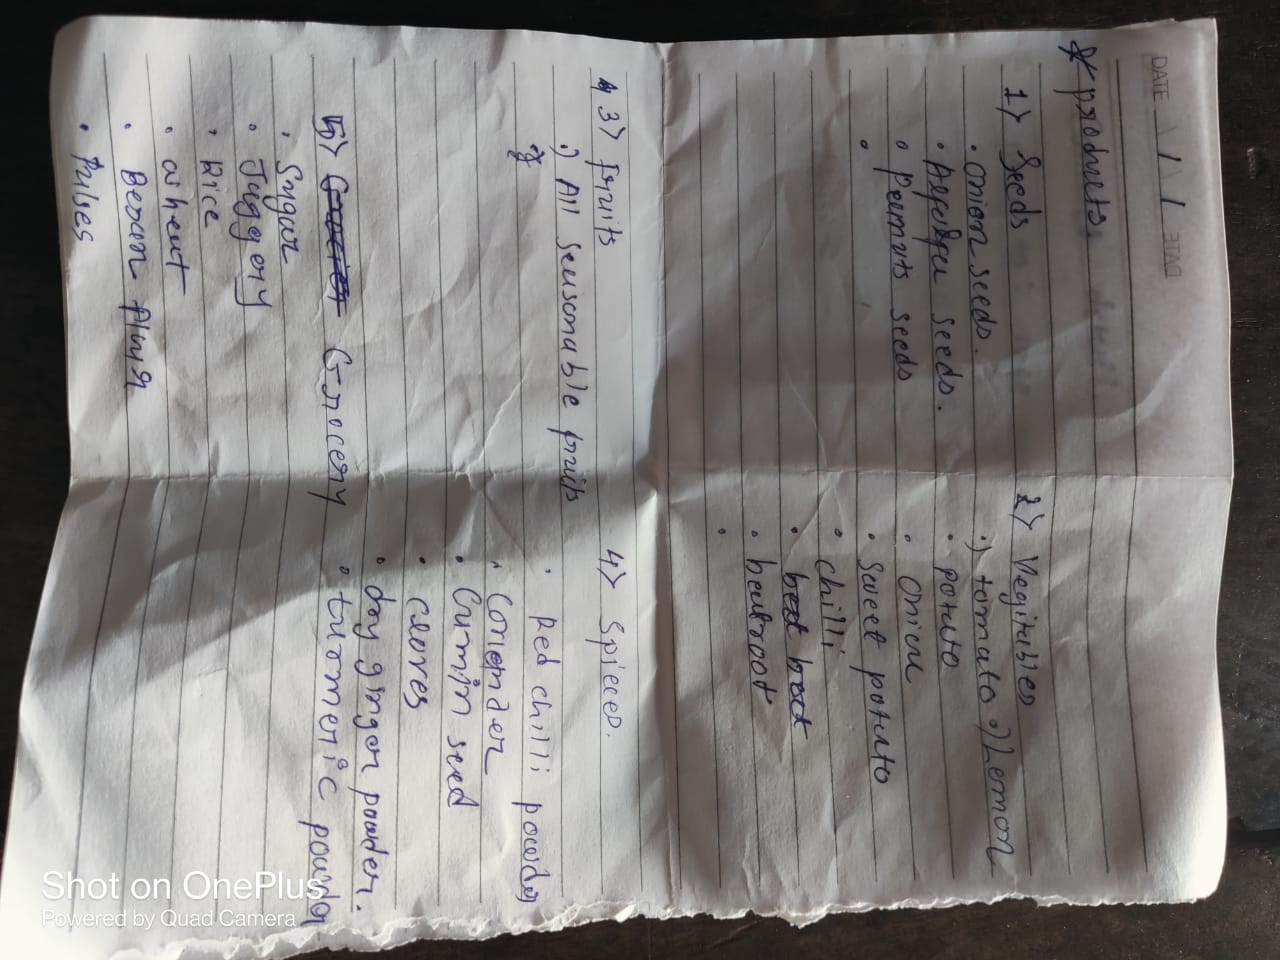 DATE
* products.
1> Seeds
• Onion seeds.
• seeds.
• Peanuts seeds
•
2> Vegitables
•) tomato •) Lemon
• potato
• Onion
• Sweet potato
• chilli
• beetroot
•
3> fruits
•) All seusonable fruits
4> Spices.
• Red chilli powder
• Coriender
• Cumin seed
• cloves
• dry gingor powder.
• turmeric powder
5> Grocery
• Sugar
• Juggery
• Rice
• wheat
• Besan
• Pulses
Shot on OnePlus
Powered by Quad Camera